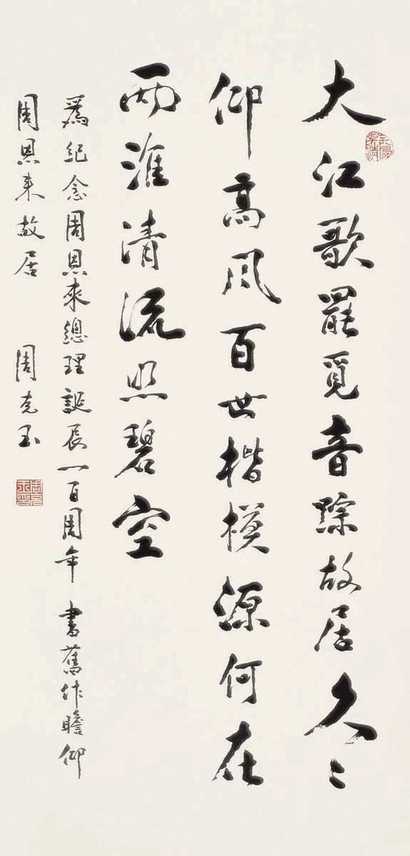 大江歌罷覓音踪故居久々
仰高风百世楷模源何在
两淮清流照碧空
為紀念周恩來總理誕辰一百周年 書舊作瞻仰
周恩来故居 周克玉